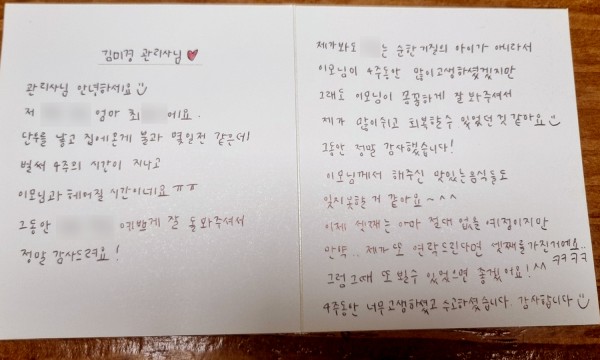 김미경 관리사님
관리사님 안녕하세요
저 엄마 최 에요.
단우를 낳고 집에온게 불과 몇일전 같은데
벌써 4주의 시간이 지나고
이모님과 헤어질 시간이네요 ㅠㅠ
그동안 예쁘게 잘 돌봐주셔서
정말 감사드려요!
제가봐도 는 순한기질의 아이가 아니라서
이모님이 4주동안 많이고생하셨겠지만
그래도 이모님이 꼼꼼하게 잘 봐주셔서
제가 많이쉬고 회복할수 있었던 것 같아요
그동안 정말 감사했습니다!
이모님께서 해주신 맛있는음식들도
잊지못할거 같아요~^^
이제 셋째는아마 절대 없을 예정이지만
만약.. 제가 또 연락드린다면 셋째를가진거에요..
ㅋㅋㅋㅋ
그럼 그때 또 뵐수 있었으면 좋겠어요!^^
4주동안 너무 고생하셨고 수고하셨습니다. 감사합니다